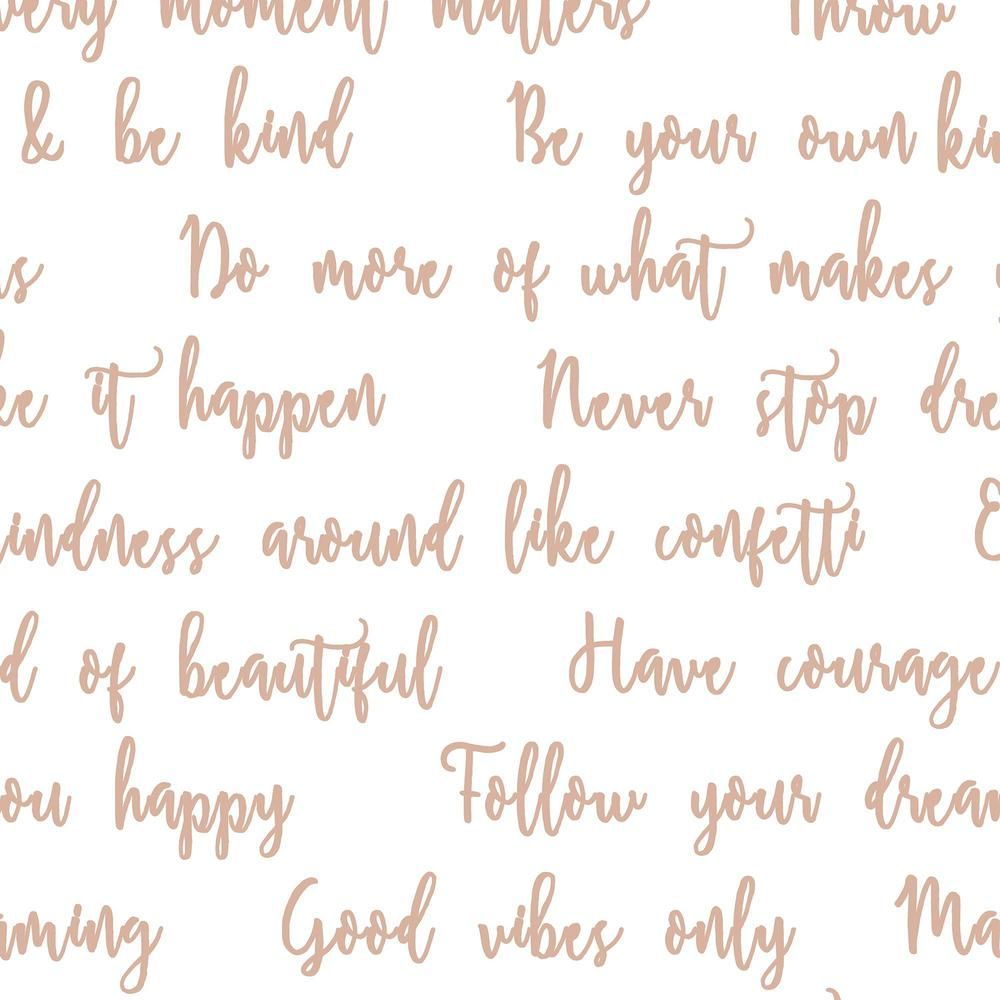 very moment matters Throw
& be kind Be your own kin
ms Do more of what makes
ke it happen Never stop dre
indness around like confetti E
d of beautiful Have courage
ou happy Follow your dream
aming Good vibes only Ma